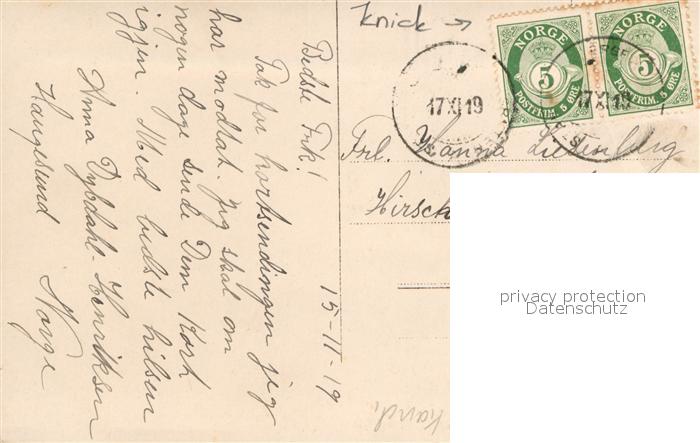 Knick →
NORGE
5
POSTFRIM. 5 ØRE
NORGE
5
POSTFRIM. 5 ØRE
17 XI 19
17 XI 19
Frl. Hanna
Hirsch
privacy protection
Datenschutz
15-11-19
Bedste Frk!
Tak for kortsendingen jeg
har modtat. jeg skal om
nogen dage sende Dem kort
igjen. Med bedste hilsen
Anna Dybdahl-Henriksen
Haugesund Norge